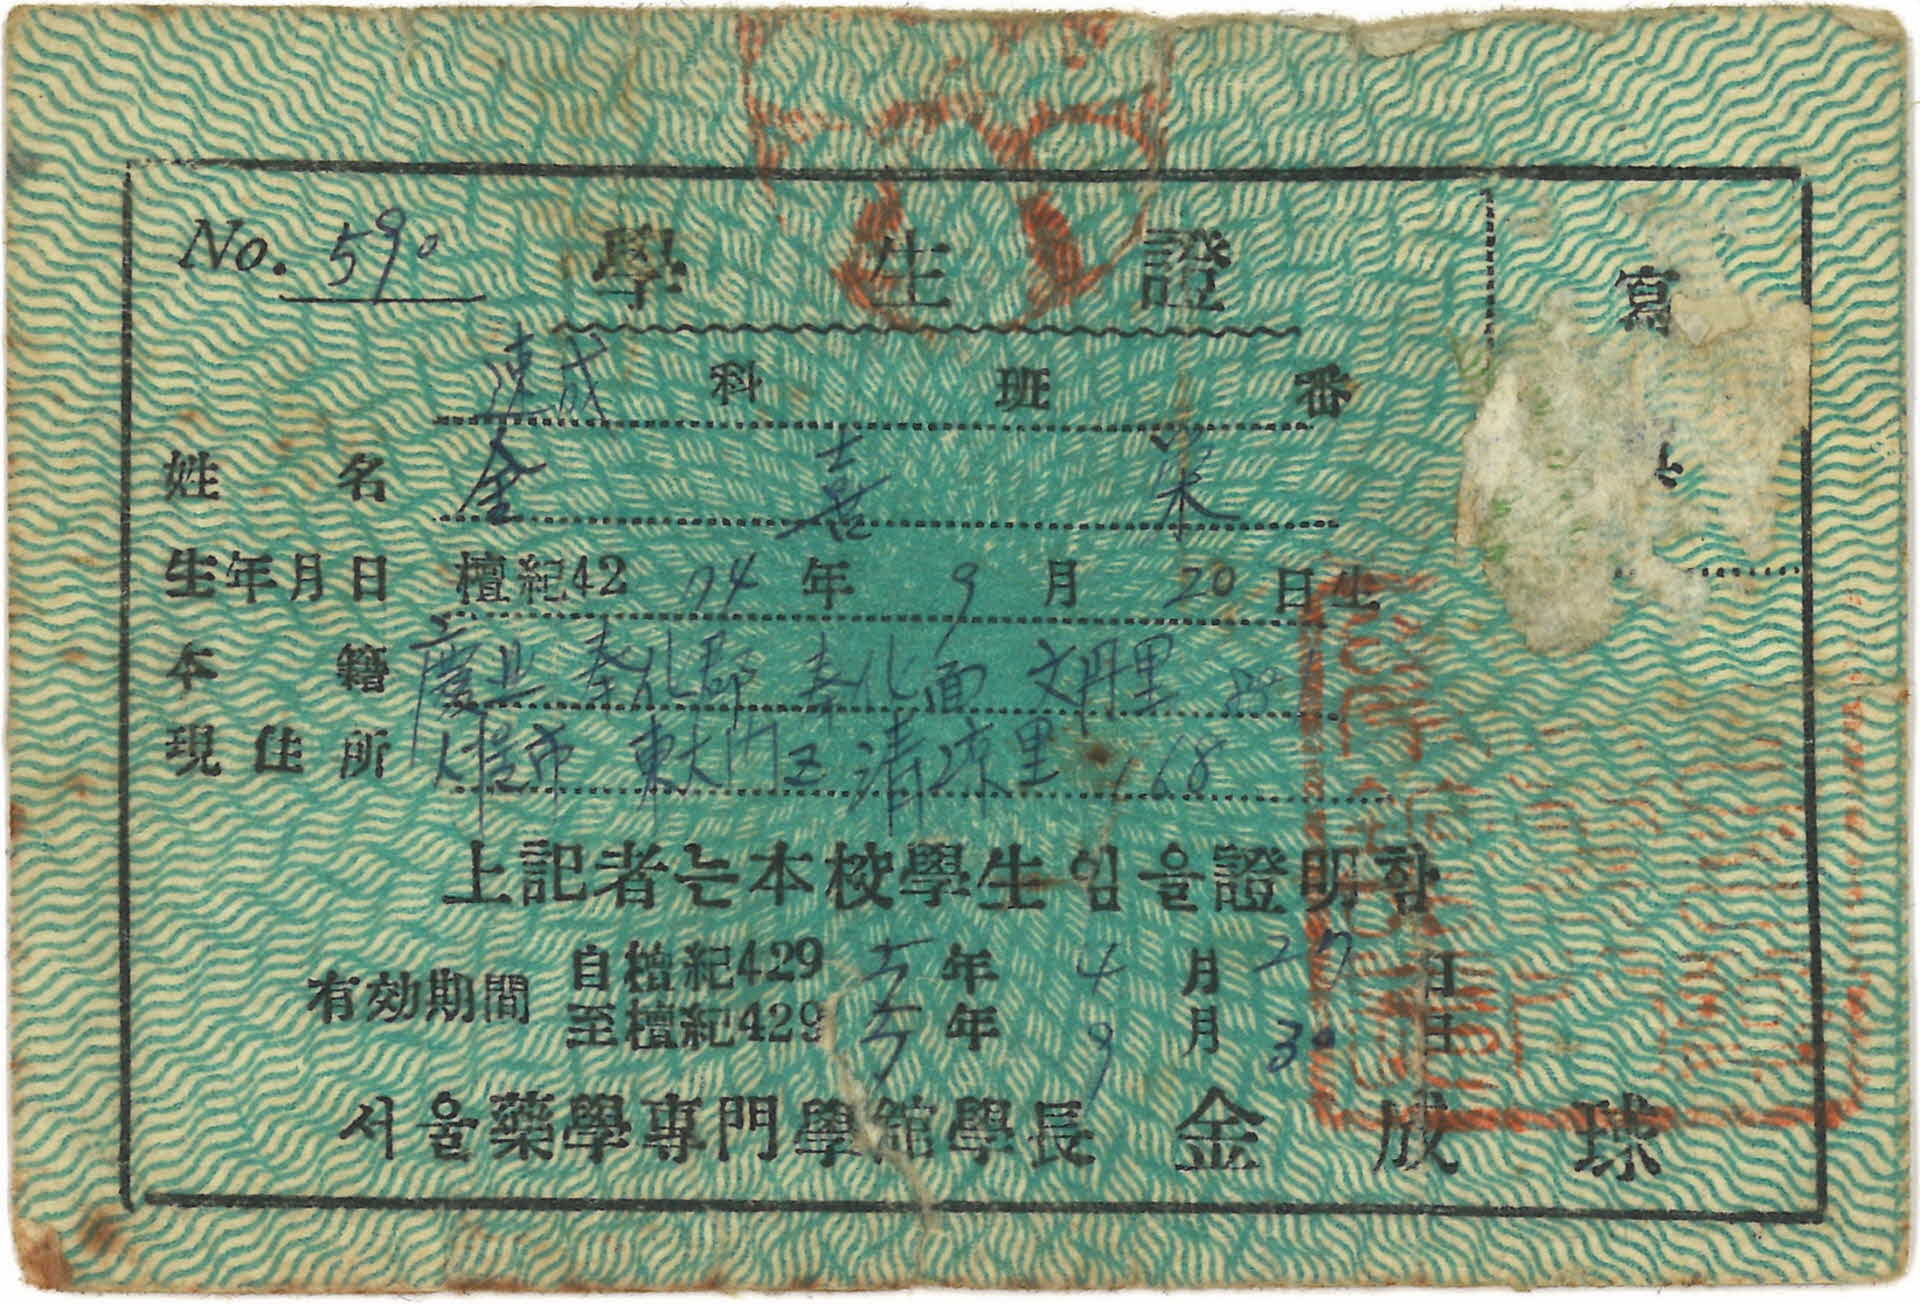 No. 590
學生證
速成 科 班 番
姓名 金喜榮
生年月日 檀紀4274年9月20日生
本籍 慶北 奉化郡 奉化面 文丹里
現住所 서울市 東大門区 清凉里 168
寫
上記者는本校學生임을證明함
有効期間
自檀紀429 年4月27日
至檀紀429 年9月30日
서울藥學專門學館學長 金成球